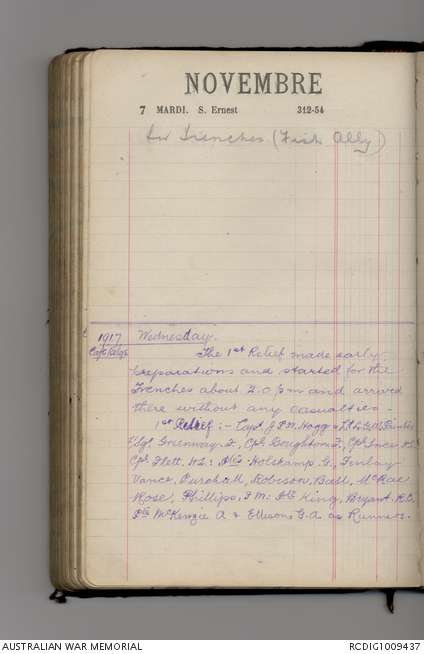 NOVEMBRE
7 MARDI. S. Ernest 312-54
In Trenches (Fish Ally)
1917 Wednesday.
The 1st Relief made early
preparations and started for the
Trenches about 2.0 pm and arrived
there without any casualties.
1st Relief :- Capt J.P.M. Hogg
Greenway. F, Cpl Boughton F, Cpl
Cpl Flett. Ptes Holskamp G., Finlay
Vance, Purchall, Robeson, Ball, McRae
Rose, Phillips, F. M: Pte King, Bryant R.C.
Pte McKenzie A & Ellison, G.A as Runners.
AUSTRALIAN WAR MEMORIAL RCDIG1009437